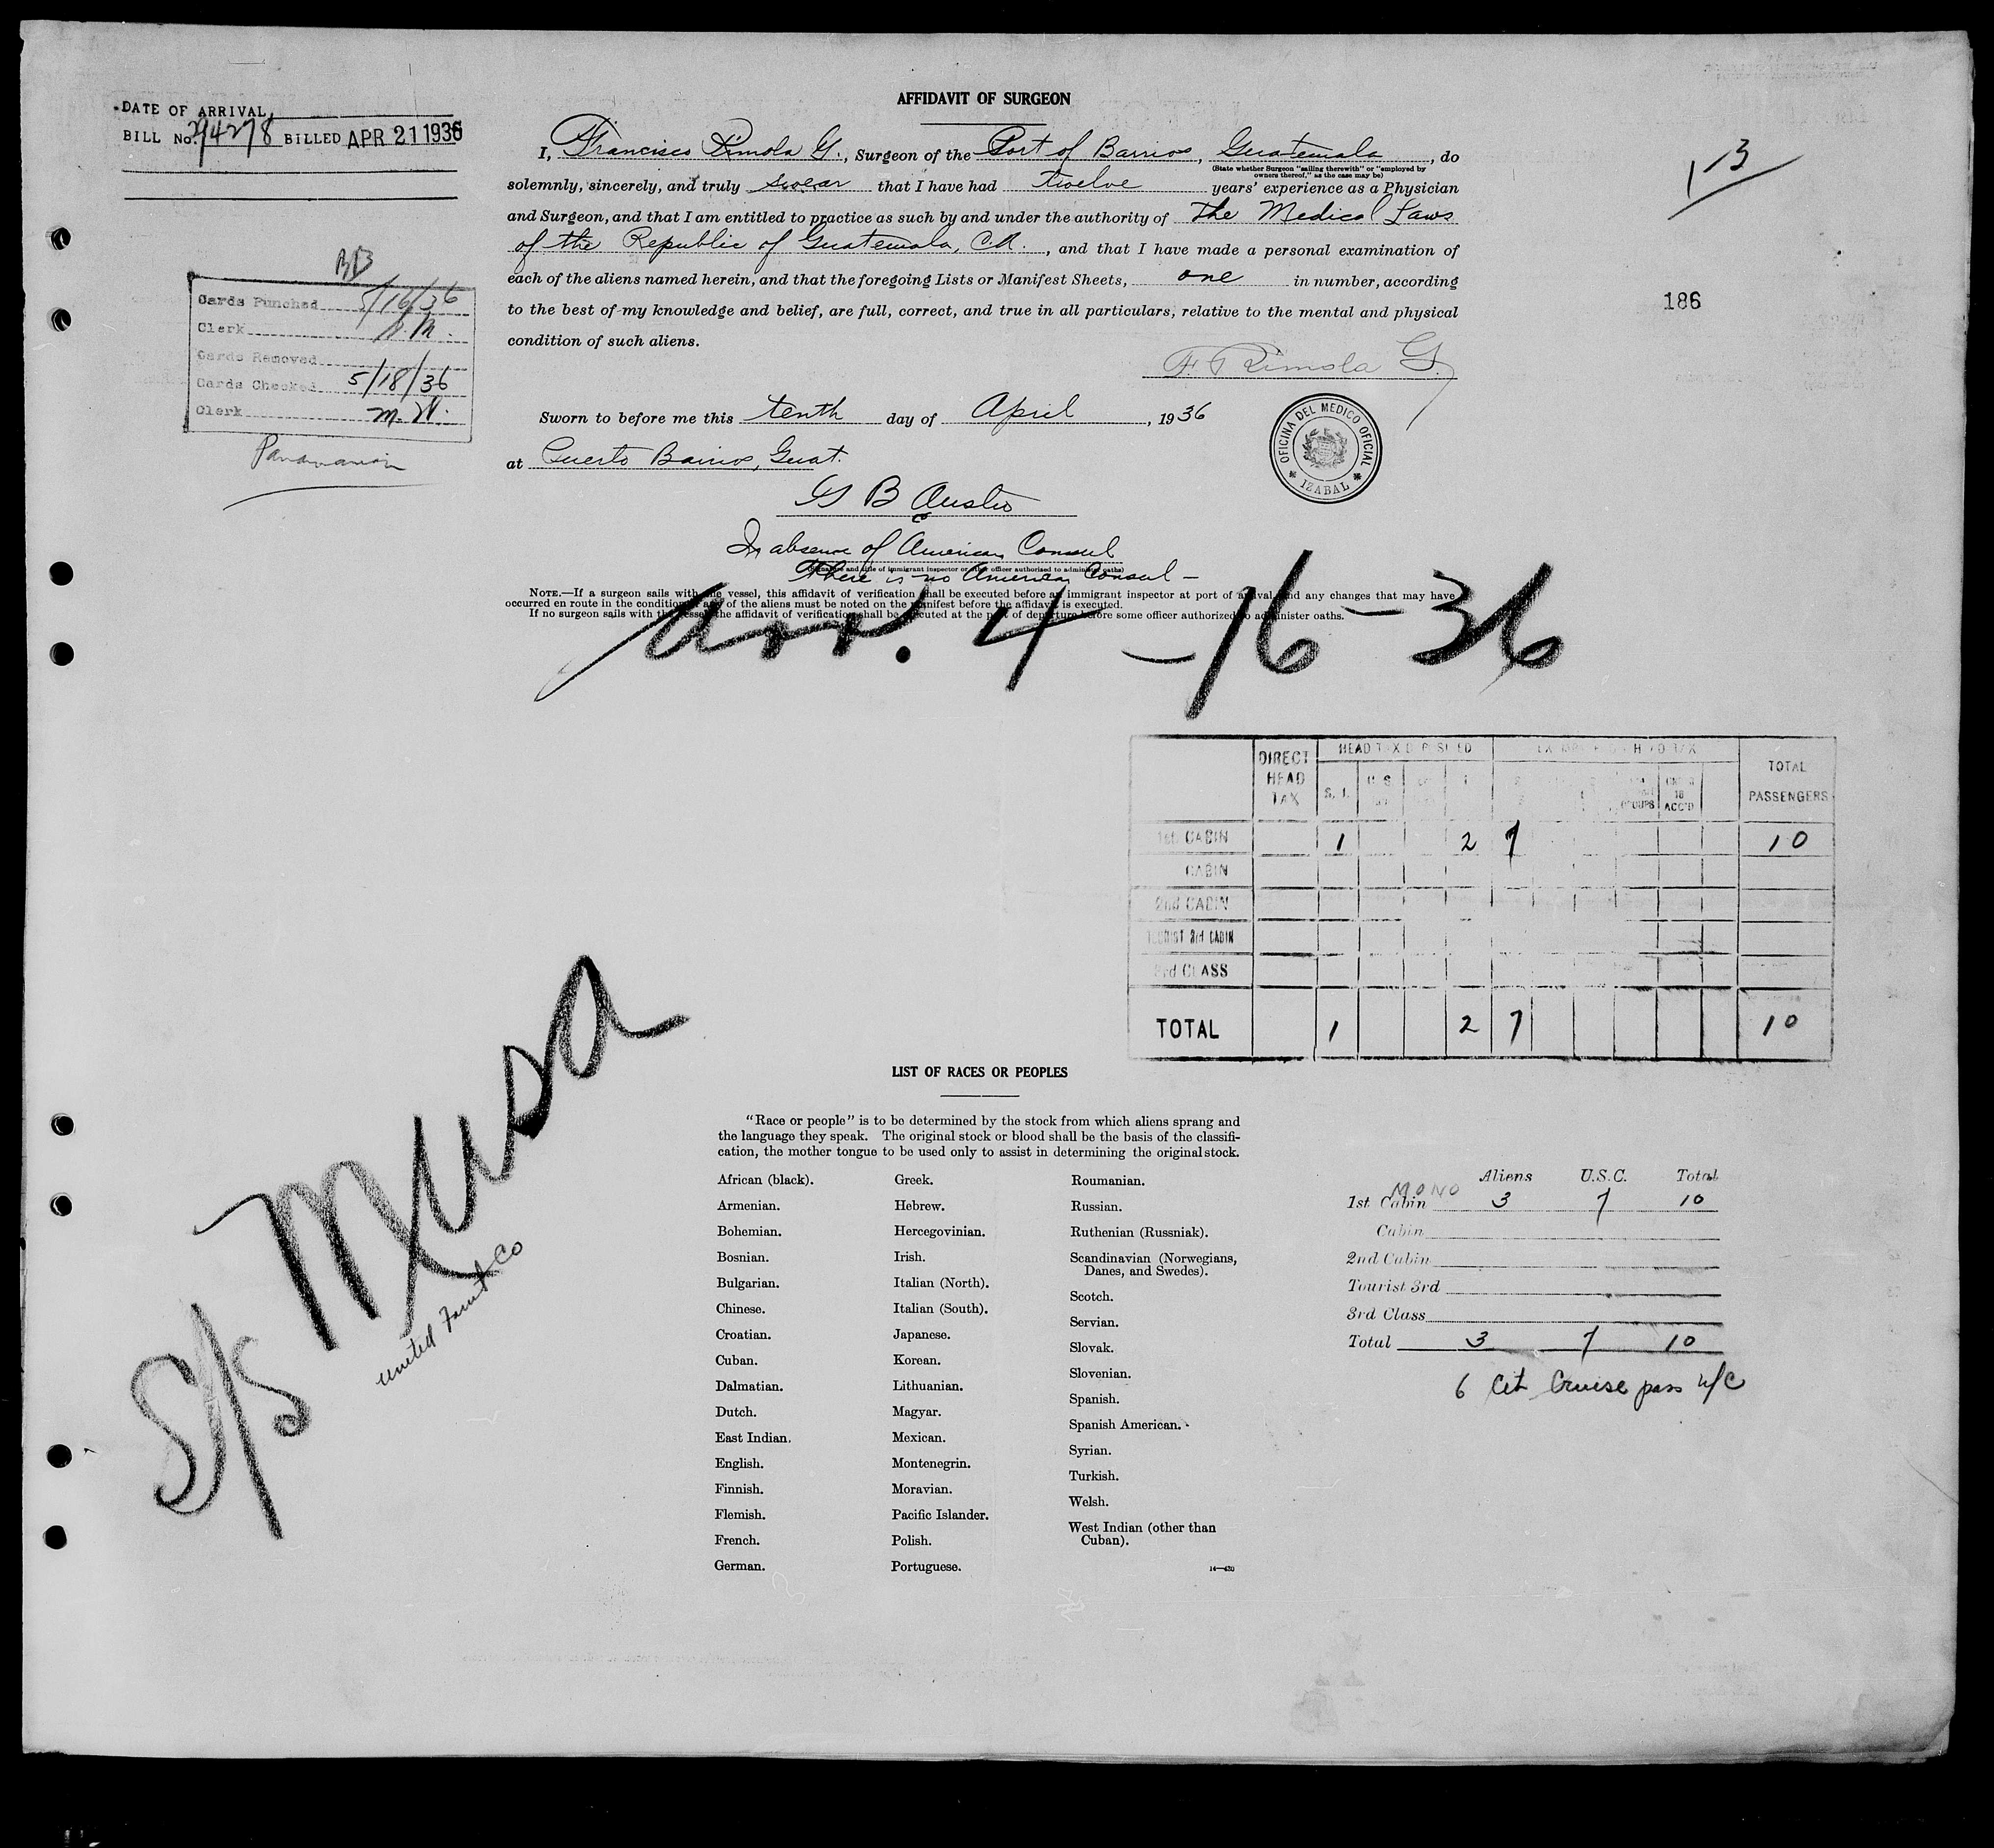 DATE OF ARRIVAL
BILL No. 294278 BILLED APR 21 1936
AFFIDAVIT OF SURGEON
I, Francisco Rimola G., Surgeon of the Port of Barrios, Guatemala, do
(State whether Surgeon "sailing therewith" or "employed by
owners thereof," as the case may be)
solemnly, sincerely, and truly swear that I have had twelve years' experience as a Physician
and Surgeon, and that I am entitled to practice as such by and under the authority of The Medical Laws
of the Republic of Guatemala, C.A., and that I have made a personal examination of
each of the aliens named herein, and that the foregoing Lists or Manifest Sheets, one in number, according
to the best of my knowledge and belief, are full, correct, and true in all particulars, relative to the mental and physical
condition of such aliens.
F. Rimola G.
Sworn to before me this tenth day of April, 1936
at Puerto Barrios, Guat.
OFICINA DEL MEDICO OFICIAL
IZABAL
In absence of American Consul
(Signature and title of immigrant inspector or other officer authorized to administer oaths)
There is no American Consul –
NOTE.—If a surgeon sails with the vessel, this affidavit of verification shall be executed before an immigrant inspector at port of arrival, and any changes that may have
occurred en route in the condition of any of the aliens must be noted on the manifest before the affidavit is executed.
If no surgeon sails with the vessel, the affidavit of verification shall be executed at the port of departure before some officer authorized to administer oaths.
13
186
Cards Punched 5/16/36
Clerk
Cards Removed
Cards Checked 5/18/36
Clerk
Panamanian
Arr. 4-16-36
DIRECT HEAD TAX
S. I.
TOTAL PASSENGERS
1st CABIN 1 2 7 10
CABIN
2nd CABIN
TOURIST 3rd CABIN
3rd CLASS
TOTAL 1 2 7 10
S/S Musa
United Fruit Co
LIST OF RACES OR PEOPLES
"Race or people" is to be determined by the stock from which aliens sprang and
the language they speak. The original stock or blood shall be the basis of the classifi-
cation, the mother tongue to be used only to assist in determining the original stock.
African (black).
Armenian.
Bohemian.
Bosnian.
Bulgarian.
Chinese.
Croatian.
Cuban.
Dalmatian.
Dutch.
East Indian.
English.
Finnish.
Flemish.
French.
German.
Greek.
Hebrew.
Hercegovinian.
Irish.
Italian (North).
Italian (South).
Japanese.
Korean.
Lithuanian.
Magyar.
Mexican.
Montenegrin.
Moravian.
Pacific Islander.
Polish.
Portuguese.
Roumanian.
Russian.
Ruthenian (Russniak).
Scandinavian (Norwegians,
Danes, and Swedes).
Scotch.
Servian.
Slovak.
Slovenian.
Spanish.
Spanish American.
Syrian.
Turkish.
Welsh.
West Indian (other than
Cuban).
Aliens U.S.C. Total
MONO
1st Cabin 3 7 10
Cabin
2nd Cabin
Tourist 3rd
3rd Class
Total 3 7 10
6 Cit Cruise pass